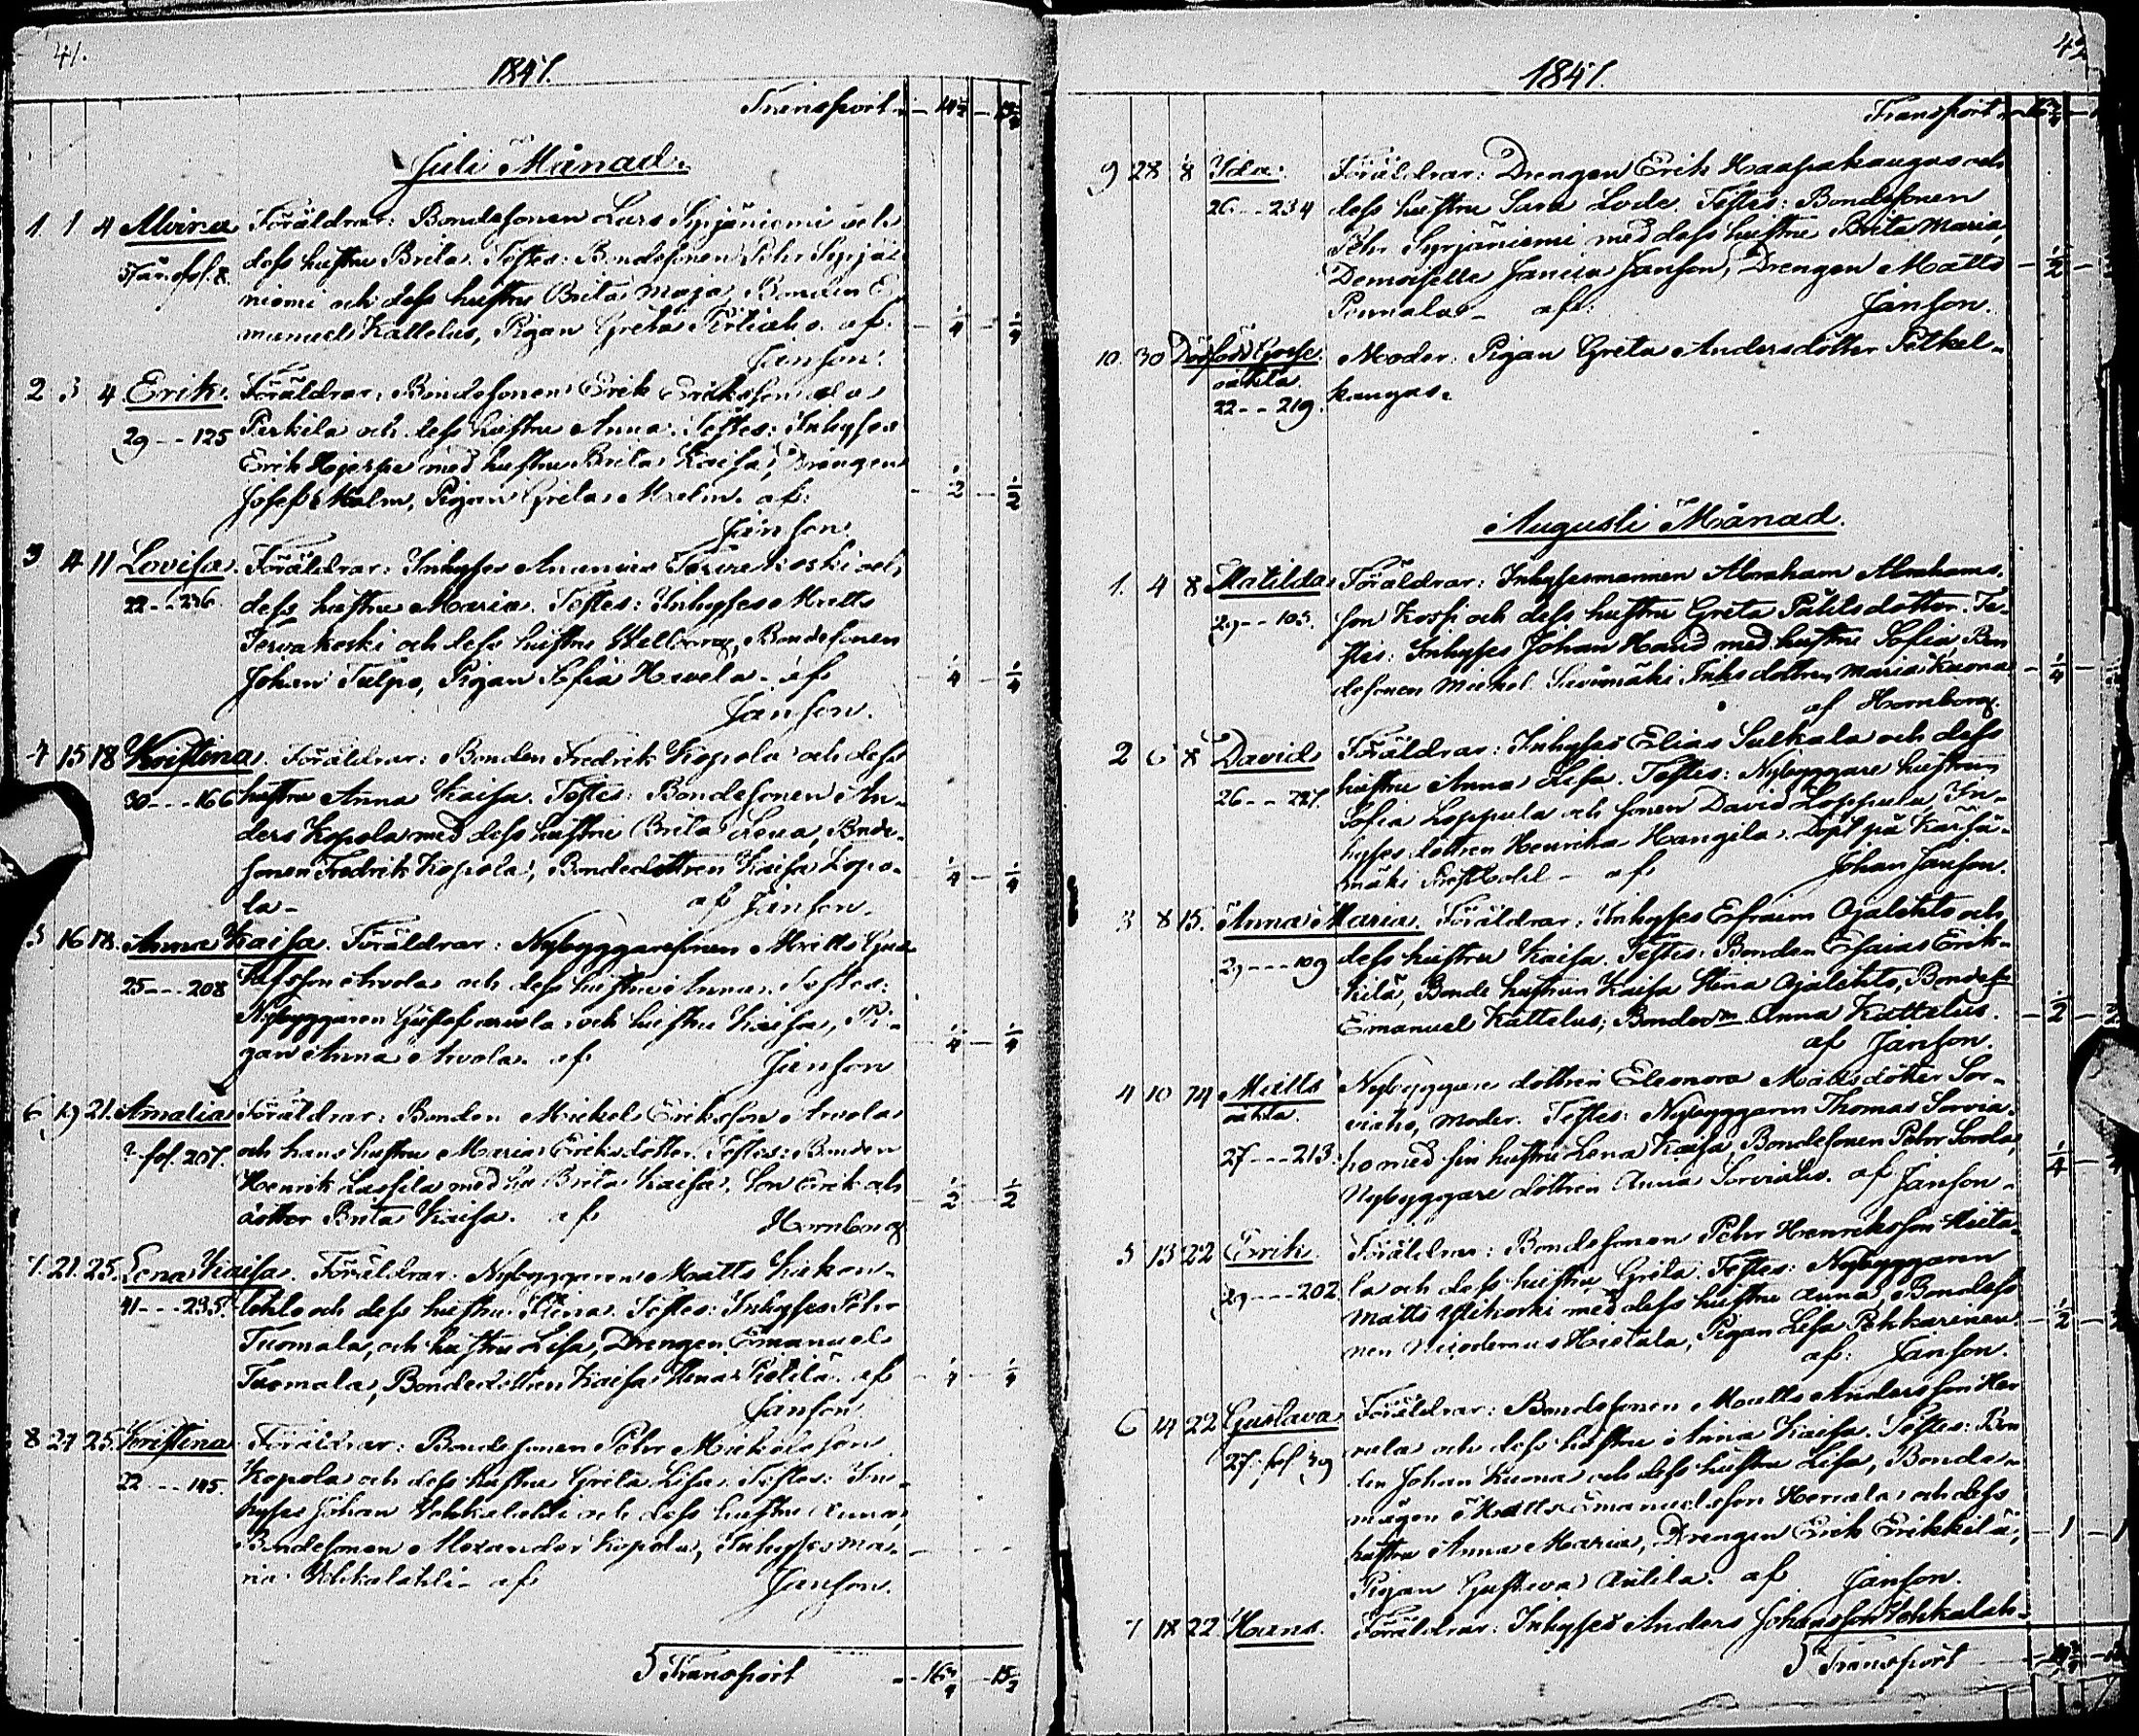 41.
1841.
Transport
Juli Månad.
1. 1 4 Alvina Föräldrar: Bondesonen Lars Syrjäniemi och
dess hustru Brita. Testes: Bondesonen Pehr Syrjä-
niemi och dess hustru Brita Maja, Bonden E-
manuel Kattelus, Pigan Greta af: 1/4 1/4
Janson.
2 3 4 Erik. Föräldrar: Bondesonen Erik Eriksson
29 -- 125 Perkila och dess hustru Anna. Testes: Inhyses
Erik Hjerpe med hustrun Brita Kaisa, Drengen
Josef Malm, Pigan Greta Malm. af: 1/2 1/2
Janson.
3 14 11 Lovisa. Föräldrar: Inhyses Ananias Tervakoski och
22 -- 236 dess hustru Maria. Testes: Inhyses Matts
Tervakoski och dess hustru Wellborg, Bondesonen
Johan Tulpo, Pigan Sofia Hevela. af 1/4 1/4
Janson.
4 15 18 Kristina. Föräldrar: Bonden Fredrik Kopola och dess
30 --- 166 hustru Anna Kaisa. Testes: Bondesonen An-
ders Kopola med dess hustru Brita Lena, Bonde-
sonen Fredrik Kopola, Bondedottren Kaisa Kopo- 1/4 1/4
la - af Janson.
5 16 18. Anna Kaisa. Föräldrar: Nybyggaresonen Matts Gus-
25 --- 208 tafsson Arvola och dess hustru Anna. Testes:
Nybyggaren Gustaf Arvola och hustru Kaisa, Pi- 1/4 1/4
gan Anna Arvola. af Janson
6 19 21. Amalia Föräldrar: Bonden Mickel Eriksson Arvola
fol. 207. och hans hustru Maria Eriksdotter. Testes: Bonden
Henrik Lassila med hu Brita Kaisa. Son Erik och 1/2 1/2
dotter Brita Kaisa. af Hornborg
7. 21. 25. Lena Kaisa. Föräldrar: Nybyggaren Matts Kakon-
41 --- 235. lehto och dess hustru Stina. Testes: Inhyses Pehr
Tuomala, och hustru Lisa, Drengen Emanuel
Tuomala, Bondedottren Kaisa Stina Pietilä. af 1/4 1/4
Janson
8 24 25. Kristina Föräldrar: Bondesonen Pehr Mickelsson
22 --- 145. Kopola och dess hustru Greta Lisa. Testes: In-
hyses Johan Vehkalahti och dess hustru Anna,
Bondesonen Alexander Kopola, Inhyses Ma-
ria Vehkalahti - af Janson.
Transport
42
1841.
Transport
9 28 8 Ida. Föräldrar: Drengen Erik Haapakangas och
26 -- 234 dess hustru Sara Lode. Testes: Bondesonen
Pehr Syrjäniemi med dess hustru Brita Maria,
Demoiselle Janson, Drengen Matts 1/2
Pernala - af: Janson.
10. 30 Dödfödd Gosse. Moder: Pigan Greta Andersdotter Pitkä-
oäkta. kangas.
22 -- 219.
Augusti Månad.
1. 4 8 Matilda Föräldrar: Inhysesmannen Abraham Abrahams-
29 -- 103. son Koski och dess hustru Greta Påhlsdotter. Te-
stes: Inhyses Johan Haud med hustru Sofia, Bon-
desonen Mickel Savimäki, Inhs dottren Maria Kuona 1/4
af Hornborg.
2 6 8 David Föräldrar: Inhyses Elias Sulkala och dess
hustru Anna Lisa. Testes: Nybyggare hustrun
Sofia Loppula och sonen David Loppula, In-
hyses dottren Henrika Hangila. Döpt på Karjä-
mäki - af Johan Janson.
3 8 15. Anna Maria. Föräldrar: Inhyses Efraim Ojalehto och
29 --- 109 dess hustru Kaisa. Testes: Bonden Esaias Erik-
kilä, Bonde hustrun Kaisa Stina Ojalehto, Bondes
Emanuel Kattelus; Anna Kattelus. 1/2
af Janson.
4 10 14 Matts Nybyggare dottren Eleonora Mattsdotter Sor-
oäkta. viaho, moder. Testes: Nybyggaren Thomas Sorvia-
27 --- 213. ho med sin hustru Lena Kaisa, Bondesonen Pehr Sorola, 1/4
Nybyggare dottren Anna Sorviaho. af Janson.
5 13 22 Erik. Föräldrar: Bondesonen Pehr Henriksson Hieta-
29 --- 202 la och dess hustru Greta. Testes: Nybyggaren
Matts Ylikoski med dess hustru Anna, Bondeso-
nen Nicodemus Hietala, Pigan Lisa Pekkarinen. 1/2
af: Janson.
6 14 22 Gustava Föräldrar: Bondesonen Matts Andersson Her-
27 fol 39 rala och dess hustru Anna Kaisa. Testes: Bon-
den Johan Kuona och dess hustru Lisa, Bonde-
mågen Matts Emanuelsson Herrala och dess
hustru Anna Maria, Drengen Erik Erikkilä, 1 1
Pigan Gustava Autila. af Janson.
7 18 22 Hans. Föräldrar: Inhyses Anders Johansson Vehkalah-
Transport